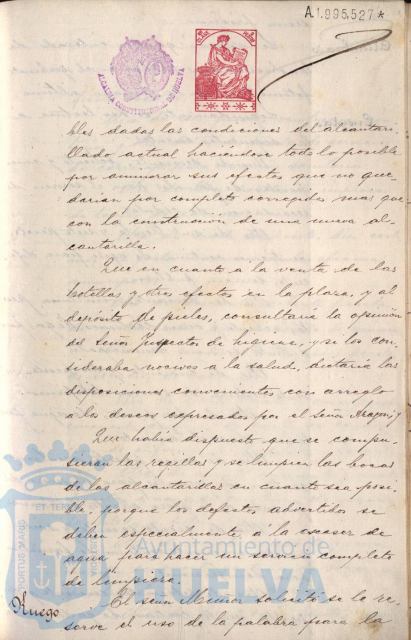 A.1.995.527*
ALCALDIA CONSTITUCIONAL DE HUELVA
bles dadas las condiciones del alcantari-
llado actual haciéndose todo lo posible
por aminorar sus efectos que no que-
darian por completo corregidos mas que
con la construcción de una nueva al-
cantarilla.
Que en cuanto á la venta de las
botellas y otros efectos en la plaza, y al
depósito de pieles, consultaria la opinión
del Señor Inspector de higiene, y si los con-
sideraba nocivos a la salud, dictaria las
disposiciones convenientes con arreglo
a los deseos expresados por el señor Aragon; y
Que habia dispuesto que se compu-
sieran las rejillas y se limpien las bocas
de las alcantarillas en cuanto sea posi-
ble, porque los defectos advertidos se
deben especialmente á la escasez de
agua para hacer un servicio completo
de limpieza.
Ruego
El señor Muñoz solicitó se le re-
serve el uso de la palabra para la
PORTUS MARIS
ET TERRAE
Ayuntamiento de
HUELVA